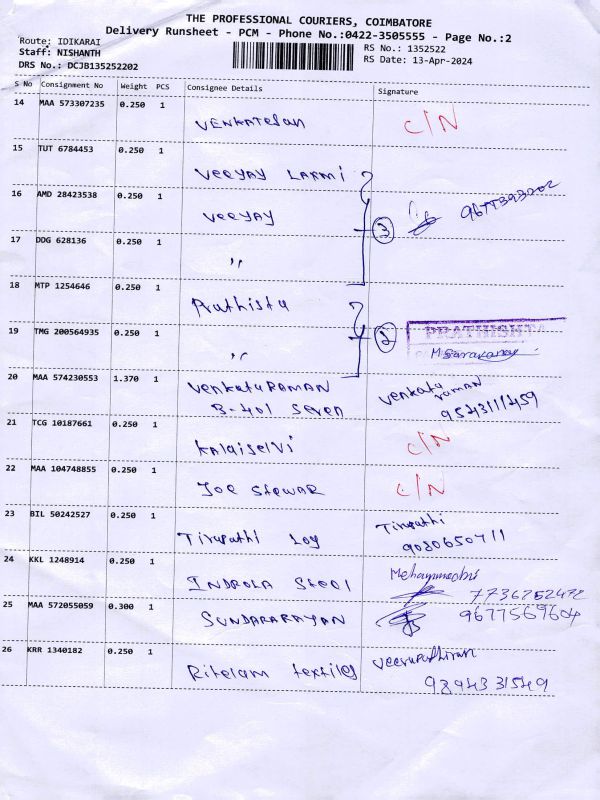 THE PROFESSIONAL COURIERS, COIMBATORE
Delivery Runsheet - PCM - Phone No.:0422-3505555 - Page No.:2
Route: IDIKARAI RS No.: 1352522
Staff: NISHANTH RS Date: 13-Apr-2024
DRS No.: DCJB135252202
S No Consignment No Weight PCS Consignee Details Signature
14 MAA 573307235 0.250 1 VENKATESAN C/N
15 TUT 6784453 0.250 1 VEEYAY LAXMI
16 AMD 28423538 0.250 1 VEEYAY 3
17 DDG 628136 0.250 1 "
18 MTP 1254646 0.250 1 Prathista
19 TMG 200564935 0.250 1 " 2 PRATHISHTA
M Saravanan
20 MAA 574230553 1.370 1 VenkataRAMAN Venkata raman
B-401 Seven
21 TCG 10187661 0.250 1 Kalaiselvi C/N
22 MAA 104748855 0.250 1 JOE STEWAR C/N
23 BIL 50242527 0.250 1 Tirupathi Loy Tirupathi
9080650711
24 KKL 1248914 0.250 1 INDROLA Steel
25 MAA 572055059 0.300 1 SUNDARARAYAN 9677569604
26 KRR 1340182 0.250 1 Ritelam textiles
9894331549